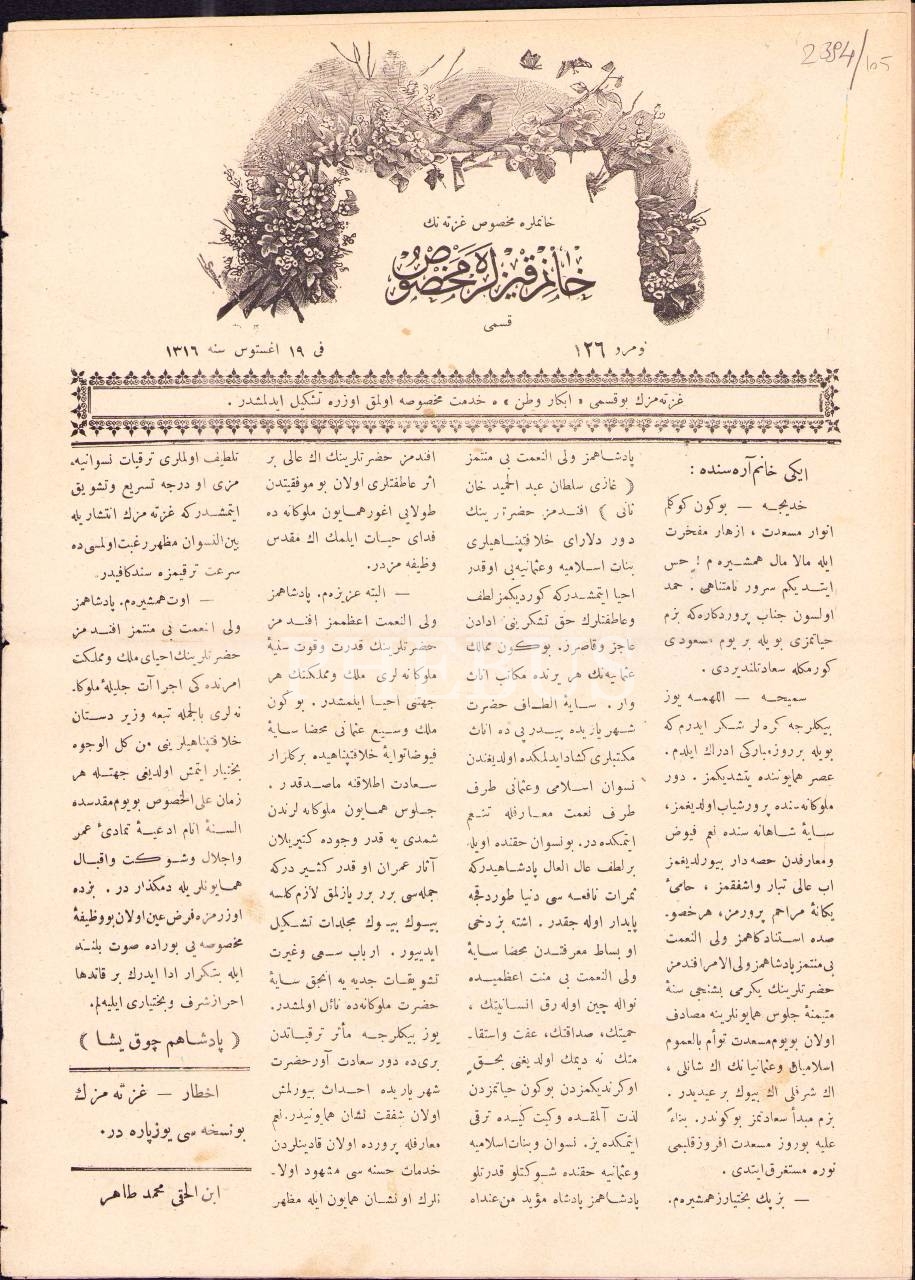 2394/105
خانملره مخصوص غزته نك
خانم قیزلره مخصوص
قسمی
نومرو ١٢٦
فی ١٩ اغستوس سنه ١٣١٦
غزته مزك بوقسمی « ابكار وطن » ه خدمت مخصوصه اولمق اوزره تشكیل ایدلمشدر .
ایكی خانم آره سنده :
خدیجه — بوكون كوكلم
انوار مسعدت ، ازهار مفخرت
ایله مالا مال همشیره م ! حس
ایتدیكم سرور نامتناهی . حمد
اولسون جناب پروردكاره كه بزم
حیاتمزی بویله بر یوم مسعودی
كورمكله سعادتلندیردی .
سمیحه — اللهمه یوز
بیكلرجه كره لر شكر ایدرم كه
بویله برروزمباركی ادراك ایلدم .
عصر همایوننده یتشدیكمز . دور
ملوكانه سنده پرورشیاب اولدیغمز ،
سایۀ شاهانه سنده نعم فیوض
ومعارفدن حصه دار بیورلدیغمز
اب عالی تبار واشفقمز ، حامیٔ
یكانۀ مراحم پرورمز ، هرخصو-
صده استنادكاهمز ولی النعمت
بی منتمز پادشاهمز ولی الامر افندمز
حضرتلرینك یكرمی بشنجی سنۀ
متیمنۀ جلوس همایونلرینه مصادف
اولان بویوم مسعدت توأم بالعموم
اسلامیان وعثمانیانك اك شانلی ،
اك شرفلی اك بیوك برعیدیدر .
بزم مبدأ سعادتمز بوكوندر . بناءً
علیه بوروز مسعدت افروز قلبمی
نوره مستغرق ایتدی .
— بز پك بختیارز همشیره م .
پادشاهمز ولی النعمت بی منتمز
( غازی سلطان عبد الحمید خان
ثانی ) افندمز حضرتلرینك
دور دلارای خلافتپناهیلری
بنات اسلامیه وعثمانیه یی اوقدر
احیا ایتمشدركه كوردیكمز لطف
وعاطفتلرك حق تشكرینی ادادن
عاجز وقاصرز . بوكون ممالك
عثمانیه نك هر یرنده مكاتب اناث
وار . سایۀ الطاف حضرت
شهریاریده پیدرپی ده اناث
مكتبلری كشاد ایدلمكده اولدیغندن
نسوان اسلامی وعثمانی طرف
طرف نعمت معارفله تنعم
ایتمكده در . بونسوان حقنده اویله
برلطف عال العال پادشاهیدركه
ثمرات نافعه سی دنیا طوردقجه
پایدار اوله جقدر . اشته بزدخی
او بساط معرفتدن محضا سایۀ
ولی النعمت بی منت اعظمیده
نواله چین اوله رق انسانیتك ،
حمیتك ، صداقتك ، عفت واستقا-
متك نه دیمك اولدیغنی بحق
اوكرندیكمزدن بوكون حیاتمزدن
لذت آلمقده وكیت كیده ترقی
ایتمكده یز . نسوان وبنات اسلامیه
وعثمانیه حقنده شوكتلو قدرتلو
پادشاهمز پادشاه مؤید من عنداه
افندمز حضرتلرینك اك عالی بر
اثر عاطفتلری اولان بو موفقیتدن
طولایی اغور همایون ملوكانه ده
فدای حیات ایلمك اك مقدس
وظیفه مزدر .
— البته عزیزه م . پادشاهمز
ولی النعمت اعظممز افندمز
حضرتلرینك قدرت وقوت سنیۀ
ملوكانه لری ملك ومملكتك هر
جهتنی احیا ایلمشدر . بوكون
ملك وسیع عثمانی محضا سایۀ
فیوضاتوایۀ خلافتپناهیده بركلزار
سعادت اطلاقنه ماصدقدر .
جلوس همایون ملوكانه لرندن
شمدی یه قدر وجوده كتیریلان
آثار عمران او قدر كثیر دركه
جمله سی برر برر یازلمق لازم كلسه
بیوك بیوك مجلدات تشكیل
ایدییور . ارباب سعی وغیرت
تشویقات جدیه یه انجق سایۀ
حضرت ملوكانه ده نائل اولمشدر .
یوز بیكلرجه مآثر ترقیاتدن
بری ده دور سعادت آور حضرت
شهریاریده احداث بیورلمش
اولان شفقت نشان همایونیدر . نعم
معارفله پرورده اولان قادینلردن
خدمات حسنه سی مشهود اولا-
نلرك اونشان همایون ایله مظهر
تلطیف اولملری ترقیات نسوانیه-
مزی او درجه تسریع وتشویق
ایتمشدركه غزته مزك انتشاریله
بین النسوان مظهر رغبت اولمسی ده
سرعت ترقیمزه سند كافیدر .
— اوت همشیره م . پادشاهمز
ولی النعمت بی منتمز افندمز
حضرتلرینك احیای ملك ومملكت
امرنده كی اجراآت جلیلۀ ملوكا-
نه لری بالجمله تبعه وزیر دستان
خلافتپناهیلرینی من كل الوجوه
بختیار ایتمش اولدیغی جهتله هر
زمان علی الخصوص بویوم مقدسده
السنۀ انام ادعیۀ تمادیٔ عمر
واجلال وشوكت واقبال
همایونلریله دمكذار در . بزده
اوزرمزه فرض عین اولان بووظیفۀ
مخصوصه یی بوراده صوت بلند
ایله بتكرار ادا ایدرك بر قاتدها
احراز شرف وبختیاری ایلیه لم .
( پادشاهم چوق یشا )
اخطار — غزته مزك
بونسخه سی یوزپاره در .
ابن الحقی محمد طاهر
PHEBUS